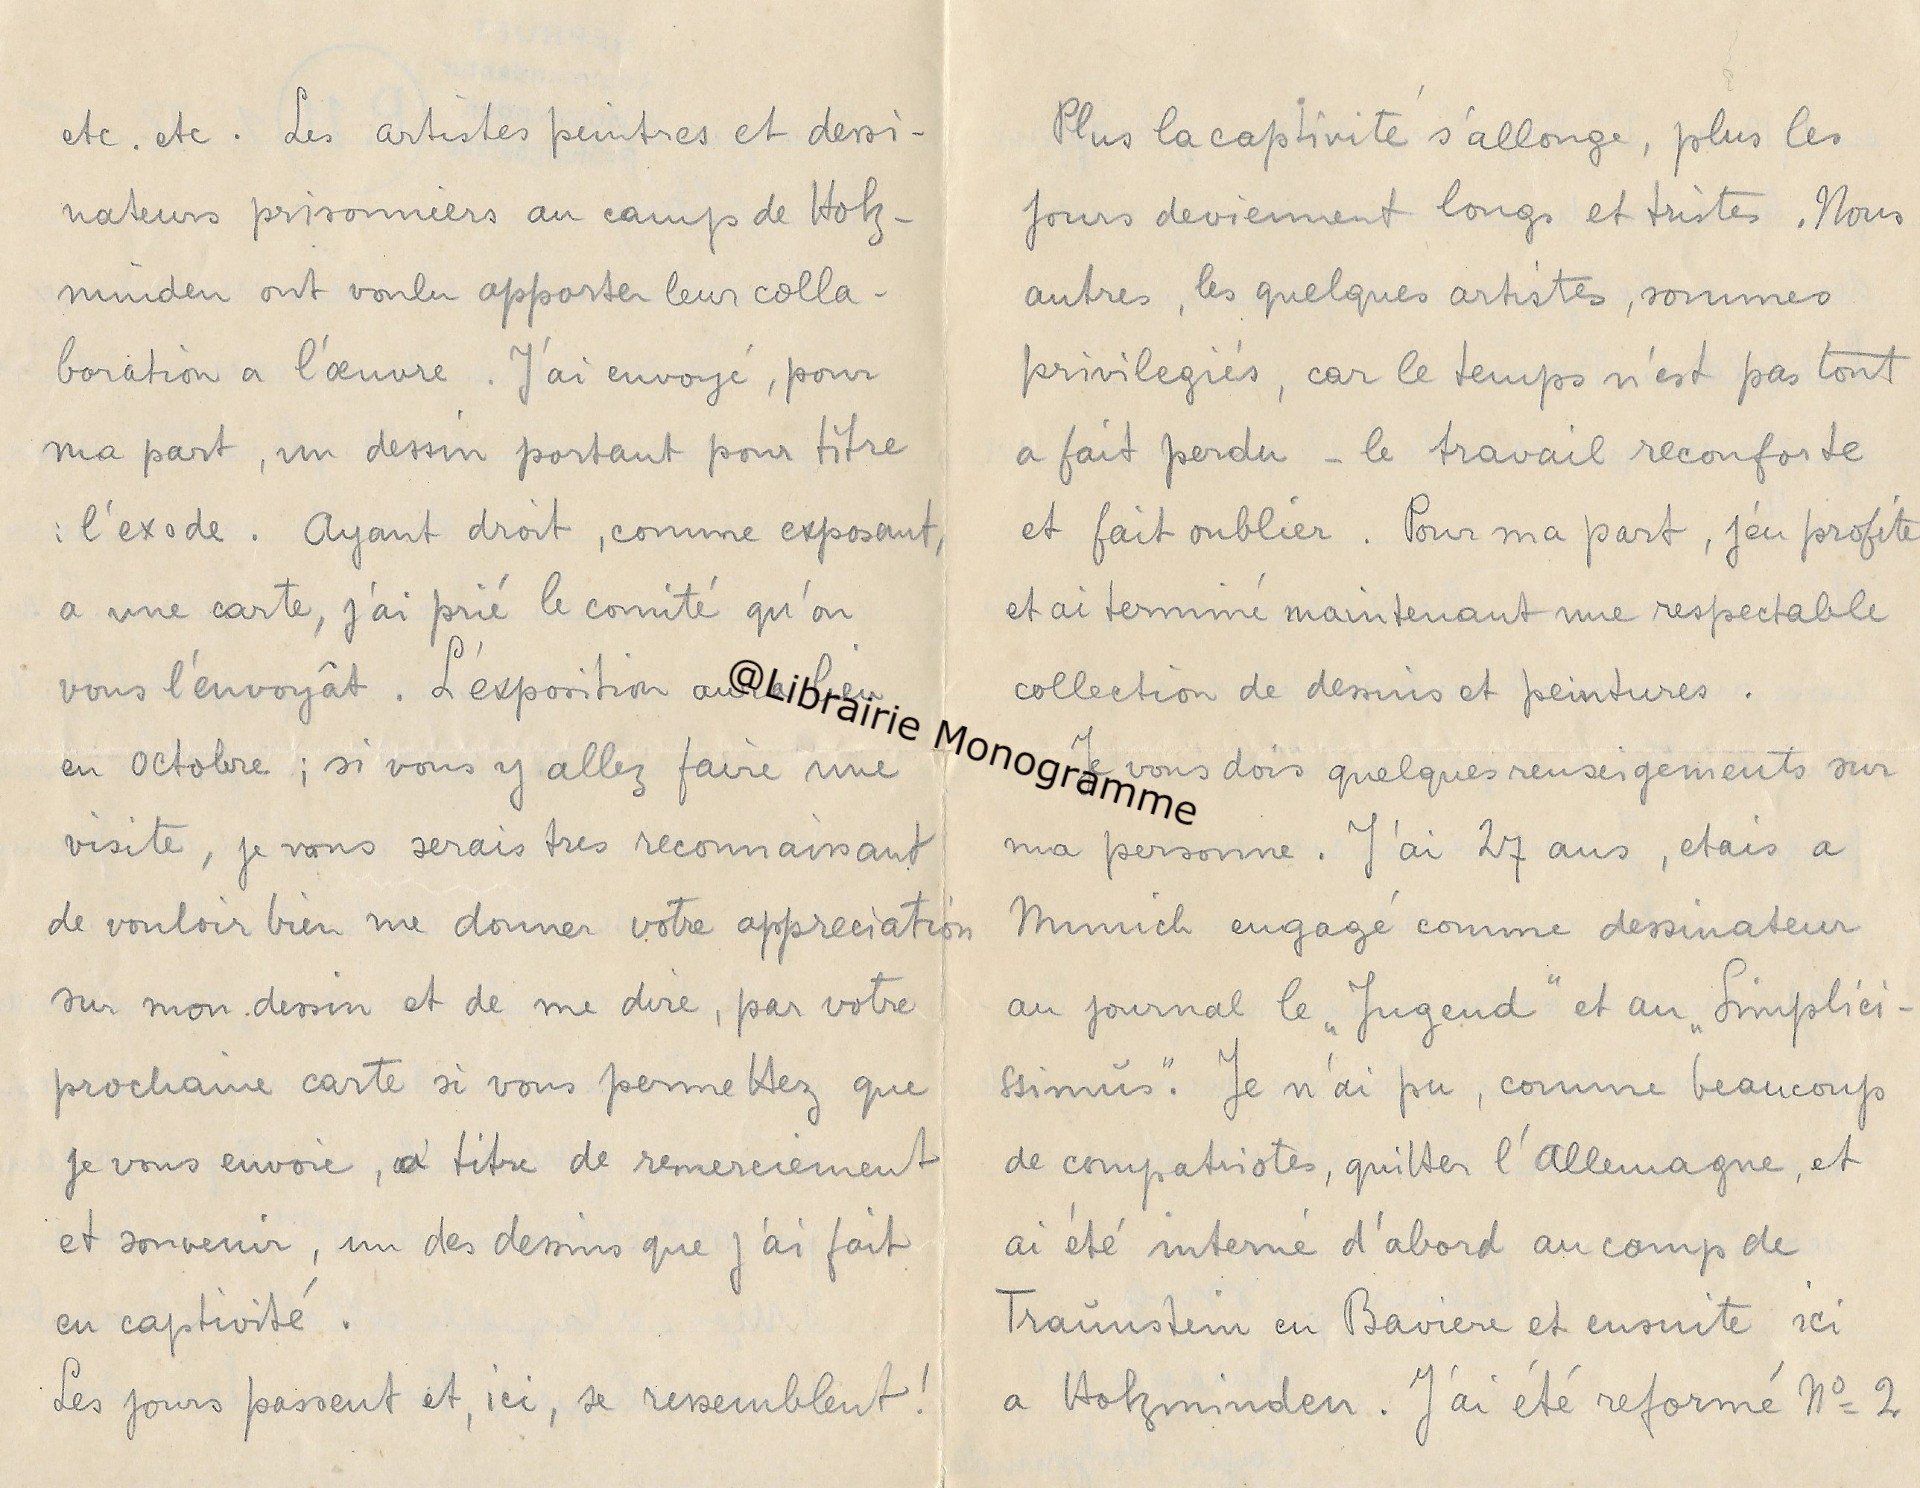 etc. etc. Les artistes peintres et dessi-
nateurs prisonniers au camp de Holz-
minden ont voulu apporter leur colla-
boration a l'œuvre. J'ai envoyé, pour
ma part, un dessin portant pour titre
: l'exode. Ayant droit, comme exposant,
a une carte, j'ai prié le comité qu'on
vous l'envoyât. L'éxposition aura lieu
en Octobre ; si vous y allez faire une
visite, je vous serais tres reconnaissant
de vouloir bien me donner votre appreciation
sur mon dessin et de me dire, par votre
prochaine carte si vous permettez que
je vous envoie, a titre de remerciement
et souvenir, un des dessins que j'ai fait
en captivité.
Les jours passent et, ici, se ressemblent!
Plus la captivité s'allonge, plus les
jours deviennent longs et tristes. Nous
autres, les quelques artistes, sommes
privilegiés, car le temps n'est pas tout
a fait perdu - le travail reconforte
et fait oublier. Pour ma part, j'en profite
et ai terminé maintenant une respectable
collection de dessins et peintures.
Je vous dois quelques renseigements sur
ma personne. J'ai 27 ans, etais a
Munich engagé comme dessinateur
au journal le „Jugend" et au „Simplici-
ssimŭs". Je n'ai pu, comme beaucoup
de compatriotes, quitter l'Allemagne, et
ai été interné d'abord au camp de
Traŭnstein en Baviere et ensuite ici
a Holzminden. J'ai été reformé Nº 2
@Librairie Monogramme